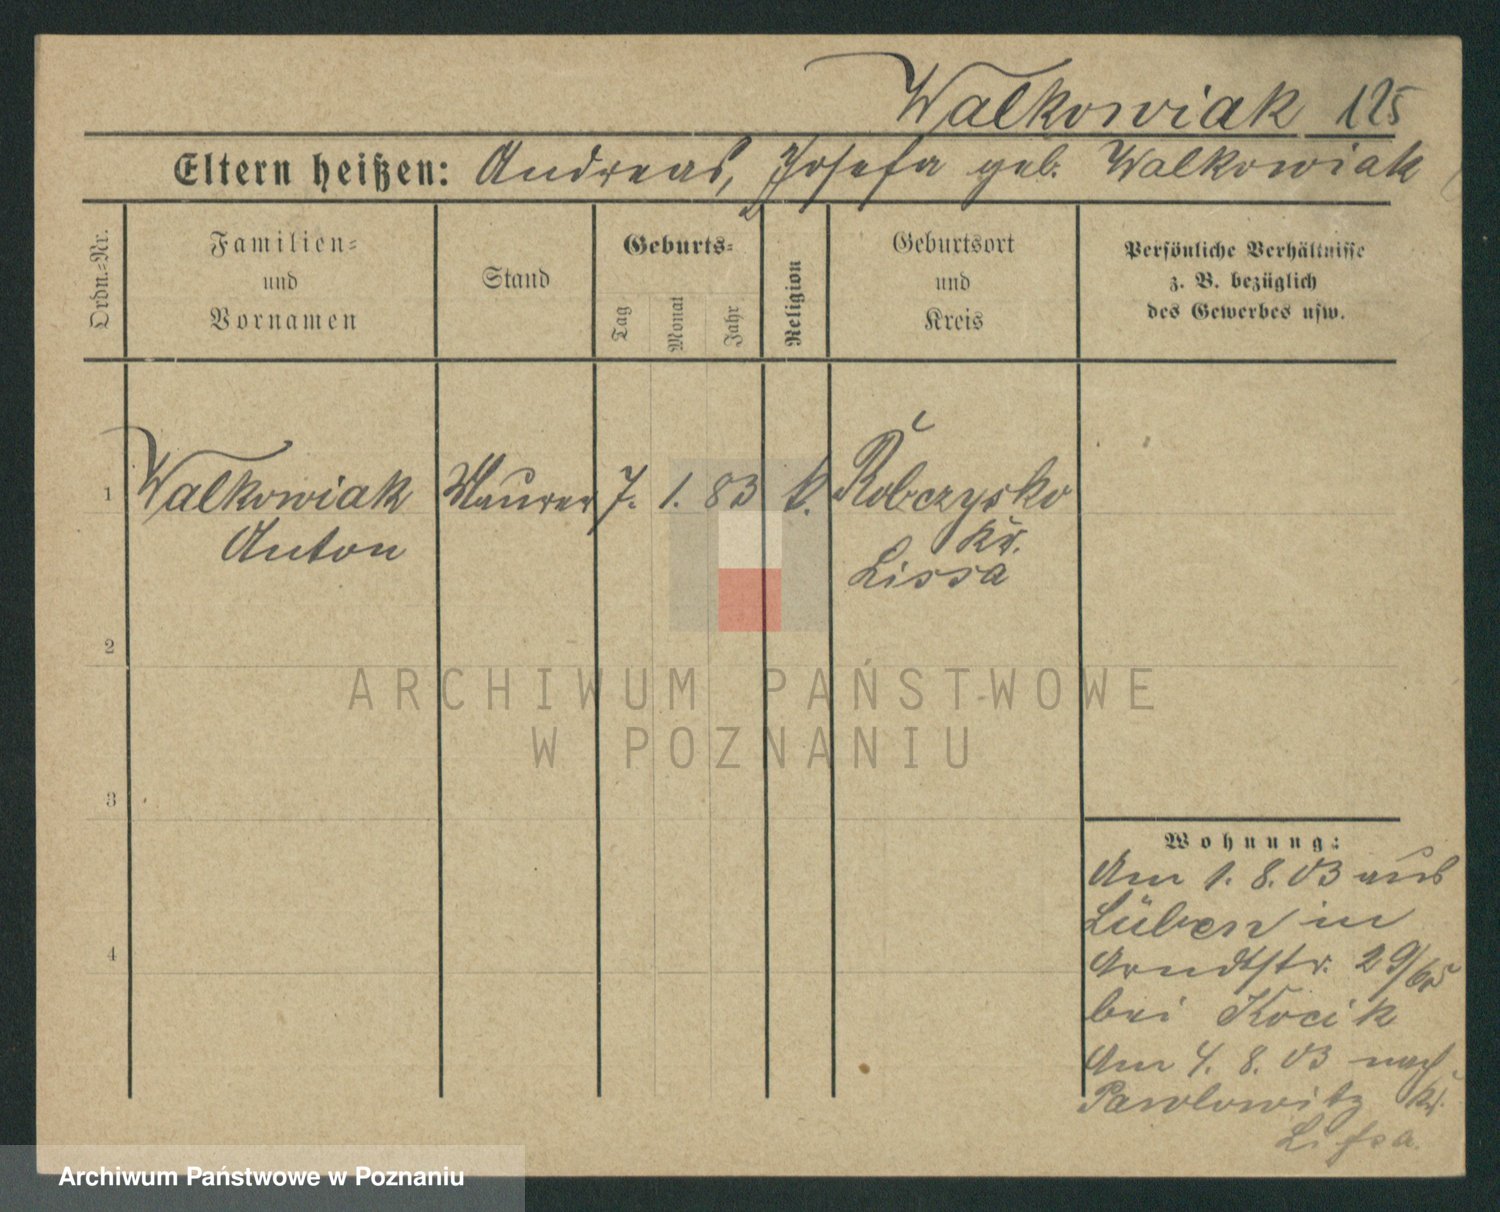 Walkowiak 125
Eltern heißen: Andreas, Josefa geb. Walkowiak
Ordn.=Nr.
Familien=
und
Vornamen
Stand
Geburts=
Tag
Monat
Jahr
Religion
Geburtsort
und
Kreis
Persönliche Verhältnisse
z. B. bezüglich
des Gewerbes usw.
1 Walkowiak Maurer 7. 1. 83 k. Robczysko
Anton Kr.
Lissa
2
3
4
ARCHIWUM PAŃSTWOWE
W POZNANIU
Wohnung:
Am 1. 8. 03 aus
Lüben in
Arndtstr. 29/65
bei Kocik
Am 4. 8. 03 nach
Pawlowitz Kr.
Lissa.
Archiwum Państwowe w Poznaniu